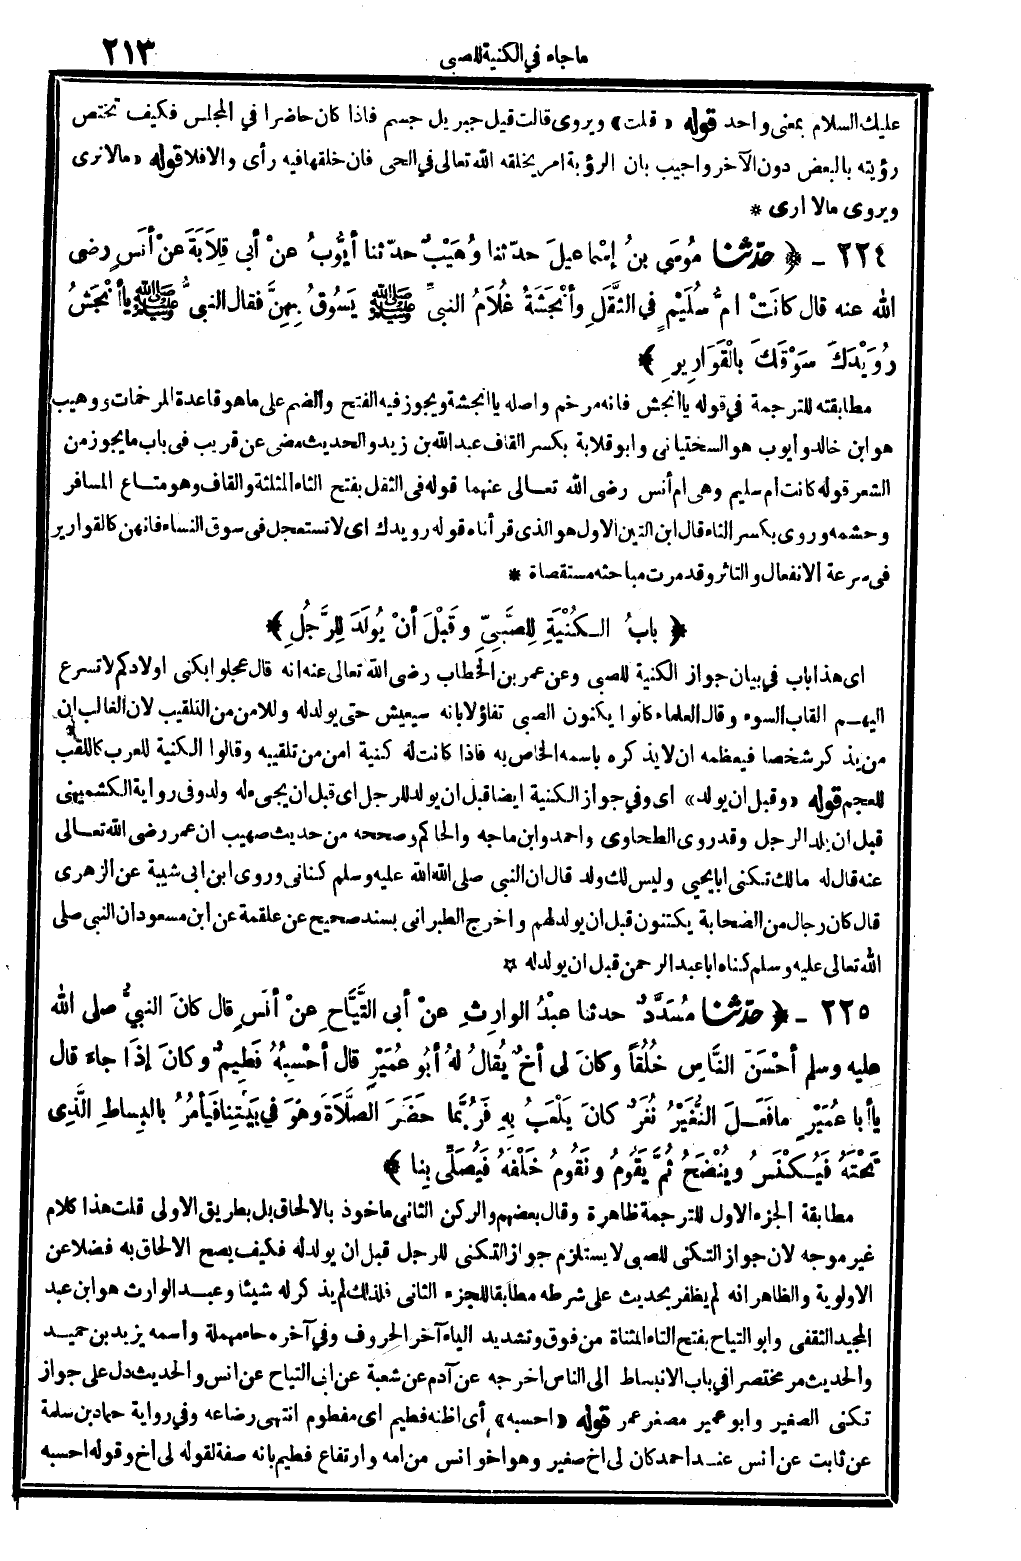 ماجاء في الكنية للصبي ٢١٣
عليك السلام بمعنى واحد قوله «قلت» ويروى قالت قيل جبريل جسم فاذا كان حاضرا في المجلس فكيف تختص
رؤيته بالبعض دون الآخر واجيب بان الرؤية امر يخلقه الله تعالى في الحى فان خلقها فيه رأى والا فلا قوله «مالا نرى
ويروى مالا ارى *
٢٢٤ - ﴿ حَدَّثَنَا مُوسَى بنُ إِسْمَاعِيلَ حدّثنا وُهَيْبٌ حدّثنا أيُّوبُ عنْ أبى قِلاَبَةَ عنْ أنَسٍ رضى
الله عنه قال كانَتْ امُّ سُلَيْمٍ في الثَّقَلِ وأنْجَشَةُ غُلاَمُ النبيِّ ﷺ يَسُوقُ بِهِنَّ فقال النبيُّ ﷺ ياأنْجَشُ
رُوَيْدَكَ سَوْقَكَ بالْقَوَارِيرِ ﴾
مطابقته للترجمة في قوله يا أنجش فانه مرخم واصله يا انجشة ويجوز فيه الفتح والضم على ما هو قاعدة المرخمات ووهيب
هو ابن خالد وأيوب هو السختيانى وابو قلابة بكسر القاف عبد الله بن زيد والحديث مضى عن قريب فى باب ما يجوز من
الشعر قوله كانت ام سليم وهى ام أنس رضى الله تعالى عنهما قوله فى الثقل بفتح الثاء المثلثة والقاف وهو متاع المسافر
وحشمه وروى بكسر الثاء قال ابن التين الاول هو الذى قرأناه قوله رويدك اى لا تستعجل فى سوق النساء فانهن كالقوارير
فى سرعة الانفعال والتاثر وقد مرت مباحثه مستقصاة *
﴿ بابُ الكُنْيَةِ لِلصَّبِىِّ وقَبْلَ أنْ يُولَدَ لِلرَّجُلِ ﴾
اى هذا باب في بيان جواز الكنية للصبى وعن عمر بن الخطاب رضى الله تعالى عنه انه قال عجلوا بكنى اولادكم لا تسرع
اليهم القاب السوء وقال العلماء كانوا يكنون الصبى تفاؤلا بانه سيعيش حتى يولد له وللامن من التلقيب لان الغالب ان
من يذكر شخصا فيعظمه ان لا يذكره باسمه الخاص به فاذا كانت له كنية امن من تلقيبه وقالوا الكنية للعرب كاللقب
للعجم قوله «وقبل ان يولد» اى وفي جواز الكنية ايضا قبل ان يولد للرجل اى قبل ان يجىء له ولد وفى رواية الكشميهنى
قبل ان يلد الرجل وقد روى الطحاوى واحمد وابن ماجه والحاكم وصححه من حديث صهيب ان عمر رضى الله تعالى
عنه قال له مالك تكنى ابا يحيى وليس لك ولد قال ان النبي صلى الله الله عليه وسلم كنانى وروى ابن ابى شيبة عن الزهرى
قال كان رجال من الصحابة يكتنون قبل ان يولد لهم واخرج الطبرانى بسند صحيح عن علقمة عن ابن مسعود ان النبي صلى
الله تعالى عليه وسلم كناه ابا عبد الرحمن قبل ان يولد له ✡
٢٢٥ - ﴿ حَدَّثَنَا مُسَدَّدٌ حدثنا عبْدُ الوارِثِ عنْ أبى التَّيَّاحِ عنْ أنَسٍ قال كانَ النبيُّ صلى الله
عليه وسلم أحْسَنَ النَّاسِ خُلُقاً وكانَ لى أخٌ يُقالُ لهُ أبُو عُمَيْرٍ قال أحْسِبُهُ فَطِيمٌ وكانَ إذَا جاءَ قال
ياأبا عُمَيْرٍ مافَعَلَ النُّغَيْرُ نُغَرٌ كانَ يَلْعَبُ بِهِ فَرُبَّما حَضَرَ الصَّلاَةَ وهُوَ فى بَيْتِنا فَيأمُرُ بالبِساطِ الَّذِى
تَحْتَهُ فَيُكْنَسُ ويُنْضَحُ ثُمَّ يَقُومُ ونَقُومُ خَلْفَهُ فَيُصَلِّى بِنا ﴾
مطابقة الجزء الاول للترجمة ظاهرة وقال بعضهم والركن الثانى ماخوذ بالالحاق بل بطريق الاولى قلت هذا كلام
غير موجه لان جواز التكنى للصبى لا يستلزم جواز التكنى للرجل قبل ان يولد له فكيف يصح الالحاق به فضلا عن
الاولوية والظاهر انه لم يظفر بحديث على شرطه مطابقا للجزء الثانى فلذلك لم يذكر له شيئا وعبد الوارث هو ابن عبد
المجيد الثقفى وابو التياح بفتح التاء المثناة من فوق وتشديد الياء آخر الحروف وفي آخره حاء مهملة واسمه يزيد بن حميد
والحديث مر مختصرا في باب الانبساط الى الناس اخرجه عن آدم عن شعبة عن ابى التياح عن انس والحديث دل على جواز
تكنى الصغير وابو عمير مصغر عمر قوله «احسبه» أى اظنه فطيم اى مفطوم انتهى رضاعه وفي رواية حماد بن سلمة
عن ثابت عن أنس عند احمد كان لى اخ صغير وهو اخو انس من امه وارتفاع فطيم بانه صفة لقوله لى اخ وقوله احسبه